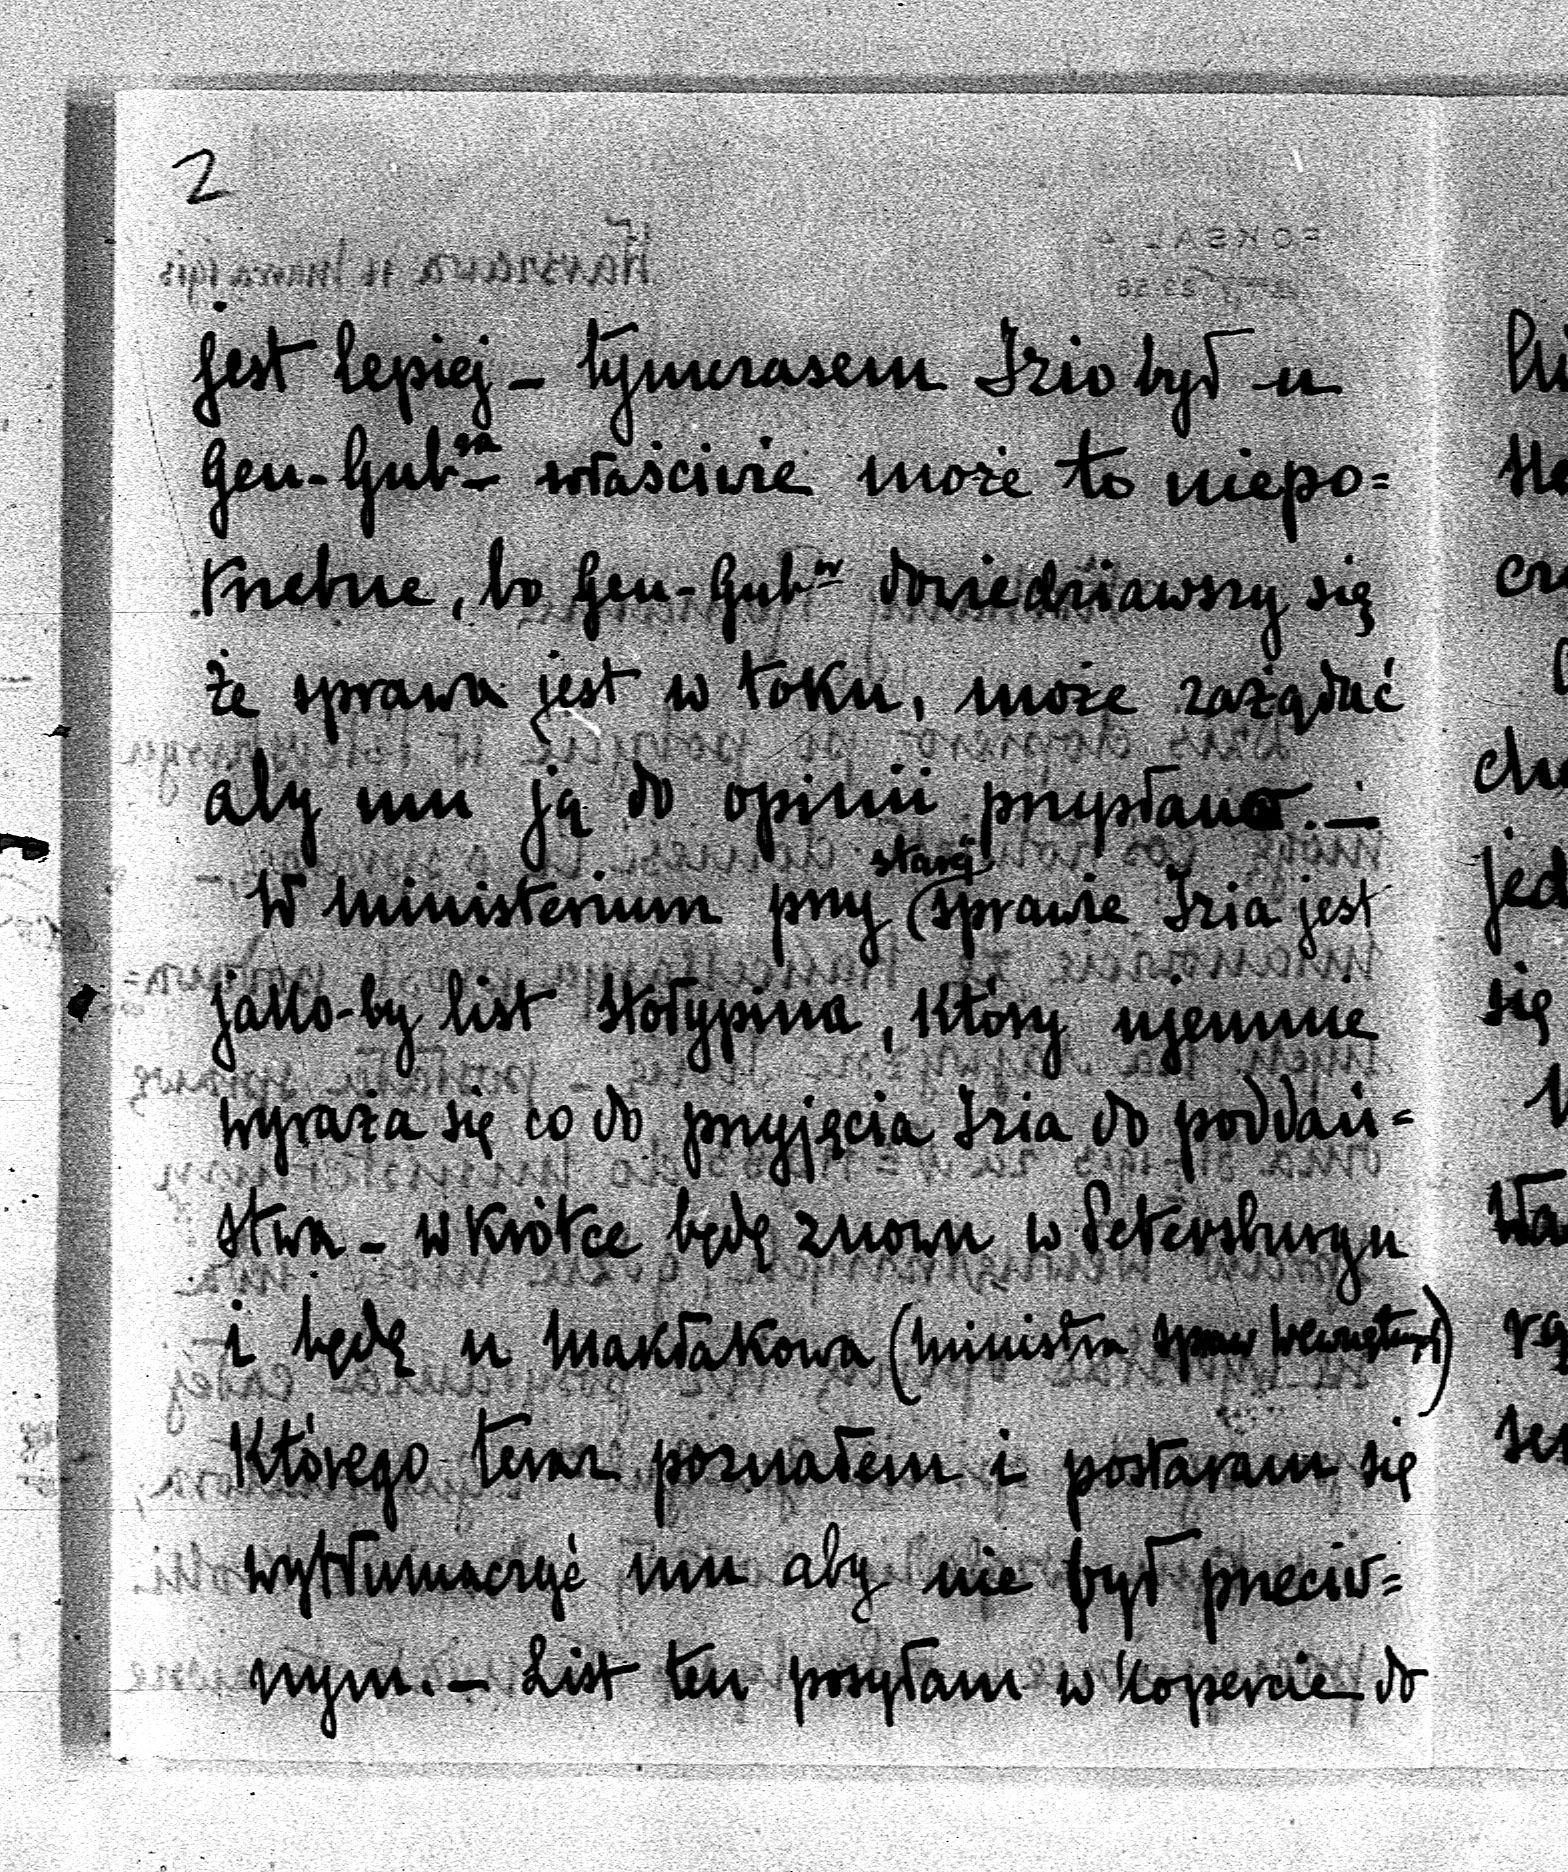 2
jest lepiej – tymczasem Izio był u
Gen-Gubra – właściwie może to niepo=
trzebne, bo Gen-Gubr dowiedziawszy się
że sprawa jest w toku, może zażądać
aby mu ją do opinii przysłano. –
W ministerium przy starej sprawie Izia jest
jakko-by list Stołypina, który ujemnie
wyraża się co do przyjęcia Izia do poddań=
stwa – wkrótce będę znowu w Petersburgu
i będę u Makłakowa (ministra spraw wewnętrznych)
którego teraz poznałem i postaram się
wytłumaczyć mu aby nie był przeciw=
nym. – List ten posyłam w kopercie do